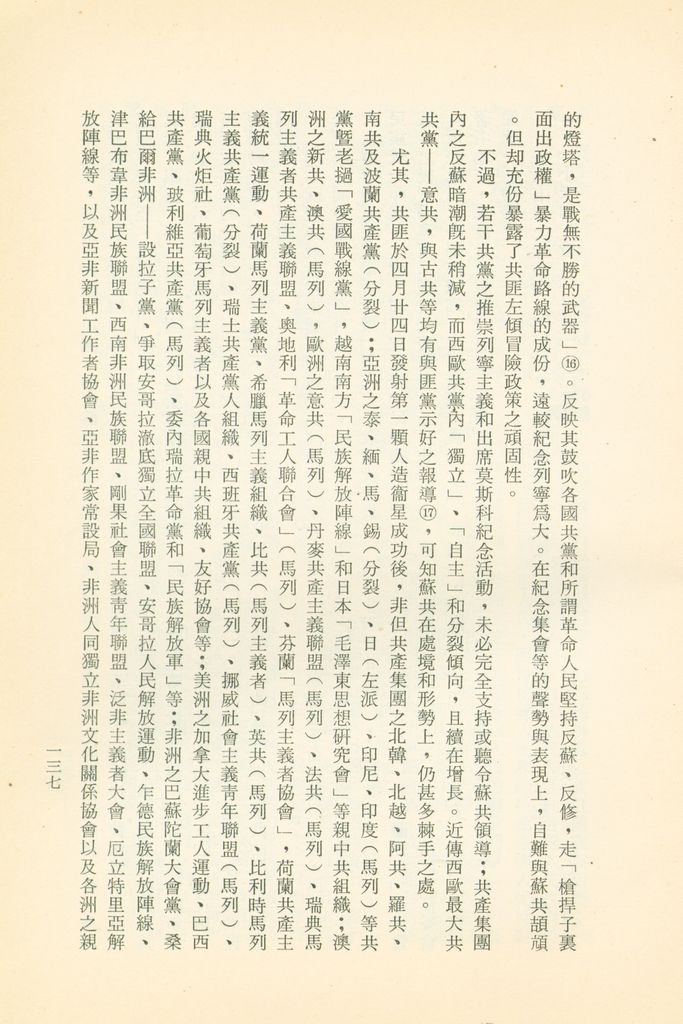 的燈塔，是戰無不勝的武器」⑯。反映其鼓吹各國共黨和所謂革命人民堅持反蘇、反修，走「槍捍子裏
面出政權」暴力革命路線的成份，遠較紀念列寧爲大。在紀念集會等的聲勢與表現上，自難與蘇共頡頏
。但却充份暴露了共匪左傾冒險政策之頑固性。
不過，若干共黨之推崇列寧主義和出席莫斯科紀念活動，未必完全支持或聽令蘇共領導；共產集團
內之反蘇暗潮旣未稍減，而西歐共黨內「獨立」、「自主」和分裂傾向，且續在增長。近傳西歐最大共
共黨——意共，與古共等均有與匪黨示好之報導⑰，可知蘇共在處境和形勢上，仍甚多棘手之處。
尤其，共匪於四月廿四日發射第一顆人造衞星成功後，非但共產集團之北韓、北越、阿共、羅共、
南共及波蘭共產黨（分裂）；亞洲之泰、緬、馬、錫（分裂）、日（左派）、印尼、印度（馬列）等共
黨曁老撾「愛國戰線黨」，越南南方「民族解放陣線」和日本「毛澤東思想硏究會」等親中共組織；澳
洲之新共、澳共（馬列），歐洲之意共（馬列）、丹麥共產主義聯盟（馬列）、法共（馬列）、瑞典馬
列主義者共產主義聯盟、奧地利「革命工人聯合會」（馬列）、芬蘭「馬列主義者協會」，荷蘭共產主
義統一運動、荷蘭馬列主義黨、希臘馬列主義組織、比共（馬列主義者）、英共（馬列）、比利時馬列
主義共產黨（分裂）、瑞士共產黨人組織、西班牙共產黨（馬列）、挪威社會主義青年聯盟（馬列）、
瑞典火炬社、葡萄牙馬列主義者以及各國親中共組織、友好協會等；美洲之加拿大進步工人運動、巴西
共產黨、玻利維亞共產黨（馬列）、委內瑞拉革命黨和「民族解放軍」等；非洲之巴蘇陀蘭大會黨、桑
給巴爾非洲——設拉子黨、爭取安哥拉澈底獨立全國聯盟、安哥拉人民解放運動、乍德民族解放陣線、
津巴布韋非洲民族聯盟、西南非洲民族聯盟、剛果社會主義青年聯盟、泛非主義者大會、厄立特里亞解
放陣線等，以及亞非新聞工作者協會、亞非作家常設局、非洲人同獨立非洲文化關係協會以及各洲之親
一三七